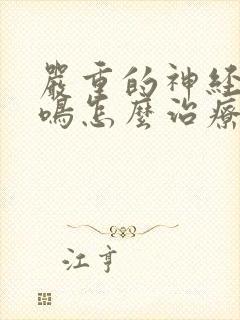 嚴重的神経
鳴怎麼治療
江亨